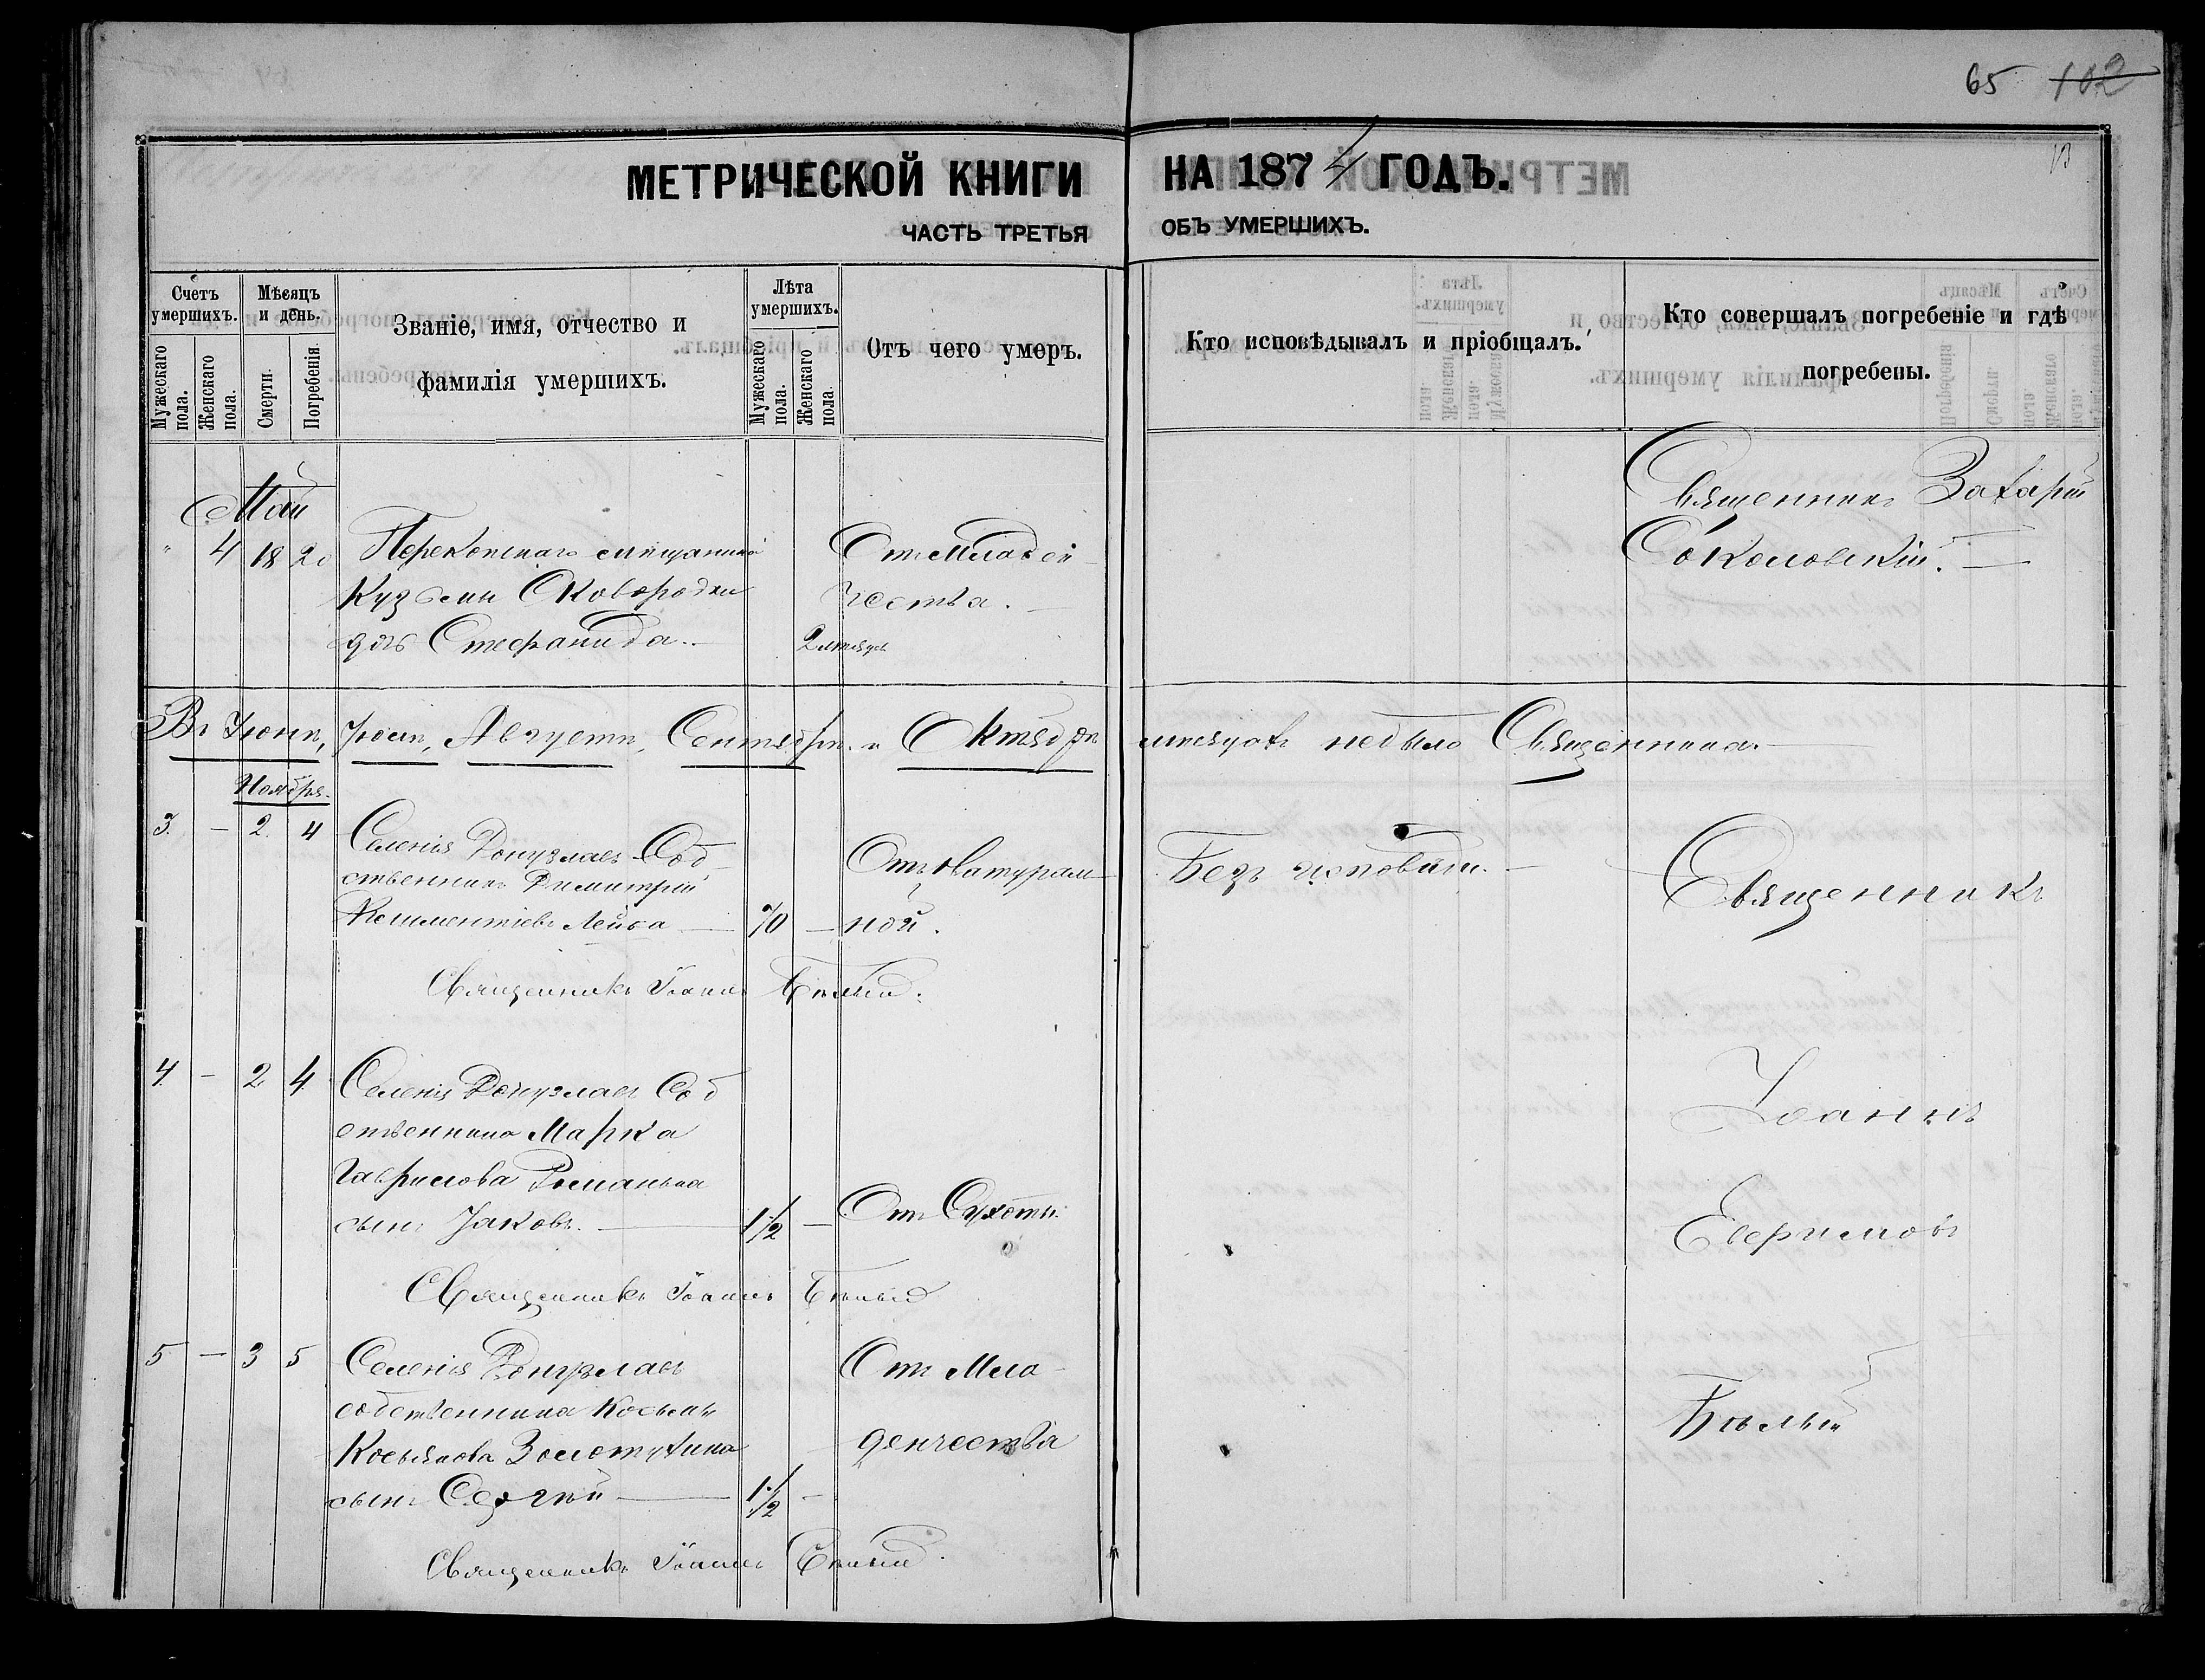 65 102
МЕТРИЧЕСКОЙ КНИГИ НА 1874 ГОДЪ.
ЧАСТЬ ТРЕТЬЯ ОБЪ УМЕРШИХЪ.
Счетъ умершихъ.
Мужескаго пола.
Женскаго пола.
Мѣсяцъ и день.
Смерти.
Погребенія.
Званіе, имя, отчество и
фамилія умершихъ.
Лѣта умершихъ.
Мужескаго пола.
Женскаго пола.
Отъ чего умеръ.
Кто исповѣдывалъ и пріобщалъ.
Кто совершалъ погребеніе и гдѣ
погребены.
Май
" 4 18 20 Перекопскаго мѣщанина Отъ Младен
Кузьмы Сковородки чества.
дочь Стефанида. 2 мѣсяц.
Священникъ Захарій
Соколовскій.
Въ Іюнѣ, Іюлѣ, Августѣ, Сентябрѣ и Октябрѣ мѣсяцахъ небыло Священника.
Ноября.
3. – 2. 4 Селенія Донузлавъ Соб
ственникъ Димитрій
Лейба 70 –
Отъ Натураль
ной.
Безъ исповѣди.
Священникъ Іоаннъ Бѣлый.
4. – 2 4. Селенія Донузлавъ Соб
ственника Марка
Гаврилова
сынъ Іаковъ. 1 1/2 – Отъ Сухоты
Священникъ Іоаннъ Бѣлый
5 – 3 5 Селенія Донузлавъ
собственника Косьмы
Косьянова Золотухина
сынъ Сергѣй 1 1/2 –
Отъ Мла
денчества
Священникъ Іоаннъ Бѣлый.
Священникъ
Іоаннъ
Ефримовъ
Бѣлый